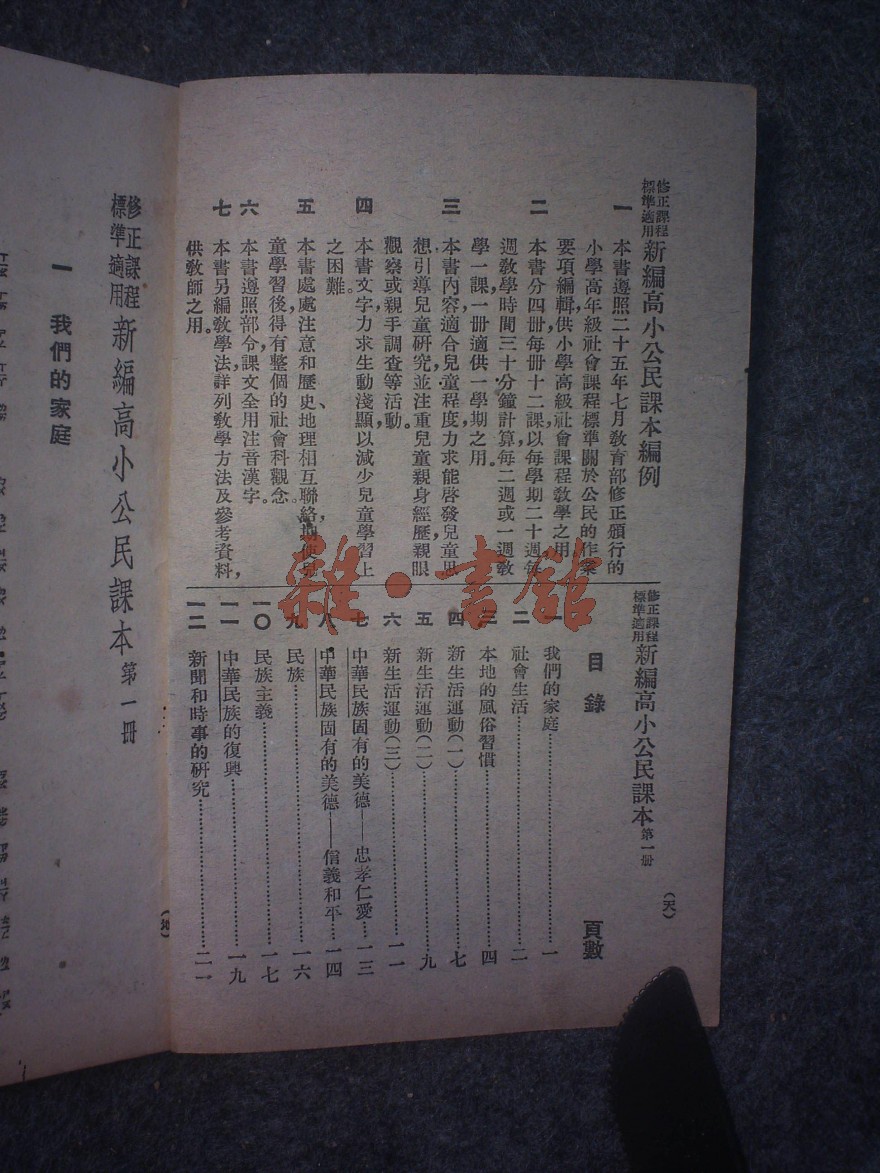 修正課程標準適用 新編高小公民課本編例
一 本書遵照二十五年七月敎育部修正頒行的
小學高年級社會課程標準關於公民的作業
要項編輯，供小學高級社會課程敎學之用。
二 本書分四册每册十二課以每學期二十週每
週敎學時間三十分鐘計算每二週或一週敎
學一課，一册適供一學期之用。
三 本書內容，適合兒童程度力求能啓發兒童思
想引導兒童硏究並注重兒童親身經歷，親眼
觀察或親手調查等活動。
四 本書文字力求生動淺顯以減少兒童學習上
之困難。
五 本書處處注意和歷史、地理相互聯絡，使兒
童學習後，得有整個的社會科觀念。
六 本書遵照部令，課文全用注音漢字。
七 本書另編敎學法，詳列敎學方法及參考資料，
供敎師之用。
修正課程標準適用 新編高小公民課本 第一册
（天）
目錄 頁數
一 我們的家庭 一
二 社會生活 二
三 本地的風俗習慣 四
四 新生活運動（一） 七
五 新生活運動（二） 九
六 新生活運動（三） 一一
七 中華民族固有的美德——忠孝仁愛 一三
八 中華民族固有的美德——信義和平 一四
九 民族 一六
一〇 民族主義 一七
一一 中華民族的復興 一九
一二 新聞和時事的硏究 二一
雜·書館
修正課程標準適用 新編高小公民課本 第一册
（地）
一 我們的家庭